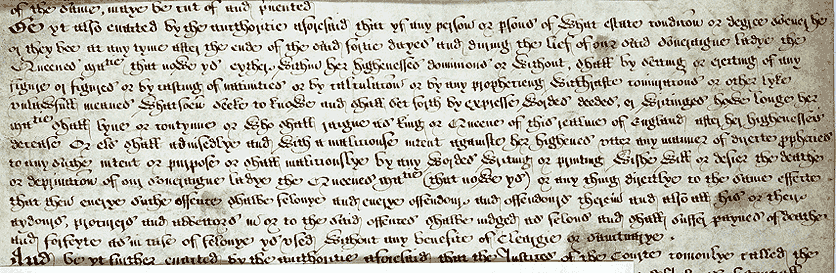 of the same, maye be cut of and prevented
Be yt also enacted by the authoritie aforesaid that yf any person or psons of what estate condition or degree soever he
or they bee at any tyme after the ende of the said fortie dayes and during the lief of our said Soveraigne ladye the
Queenes matie that nowe ys eyther within her highenesses dominions or without, shall by setting or erecting of any
figure or figures or by casting of nativities or by calculation or by any prophecieng witchcrafte coniurations or other lyke
unlawfull meanes whatsoevr seeke to knowe and shall set forth by expresse wordes deedes, or writinges howe longe her
matie shall lyve or contynue or who shall raigne as king or Queene of this realme of England after her highenesses
decease Or els shall advisedlye and with a malitiouse intent against her highenes utter any manner of directe prophecies
to any suche intent or purpose or shall malitiouslye by any wordes writing or printing wishe will or desier the deathe
or deprivation of our Soveraigne ladye the Queenes matie (that nowe ys) or any thing directlye to the same effecte
that then everye suche offence shalbe felonye and everye offendor and offendors therein and also all his or their
aydors, procurers and abbettors in or to the said offences shalbe iudged as felons and shall suffer paynes of deathe
and forfeyte as in case of felonye ys used, without any benefite of Cleargie or sanctuarye.
And be yt further enacted by the authoritie aforesaid that the Justices of the Courte comonlye called the